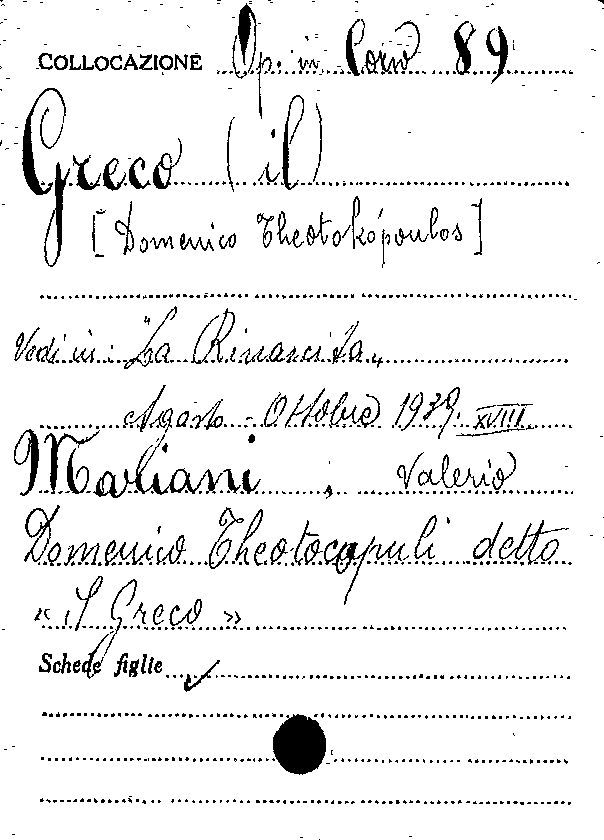 COLLOCAZIONE Op. in Corso 89
Greco (il)
[Domenico Theotokópoulos]
Vedi in: "La Rinascita"
Agosto - Ottobre 1939. XVIII
Mariani, Valerio
Domenico Theotocopuli detto
« Il Greco »
Schede figlie ✓